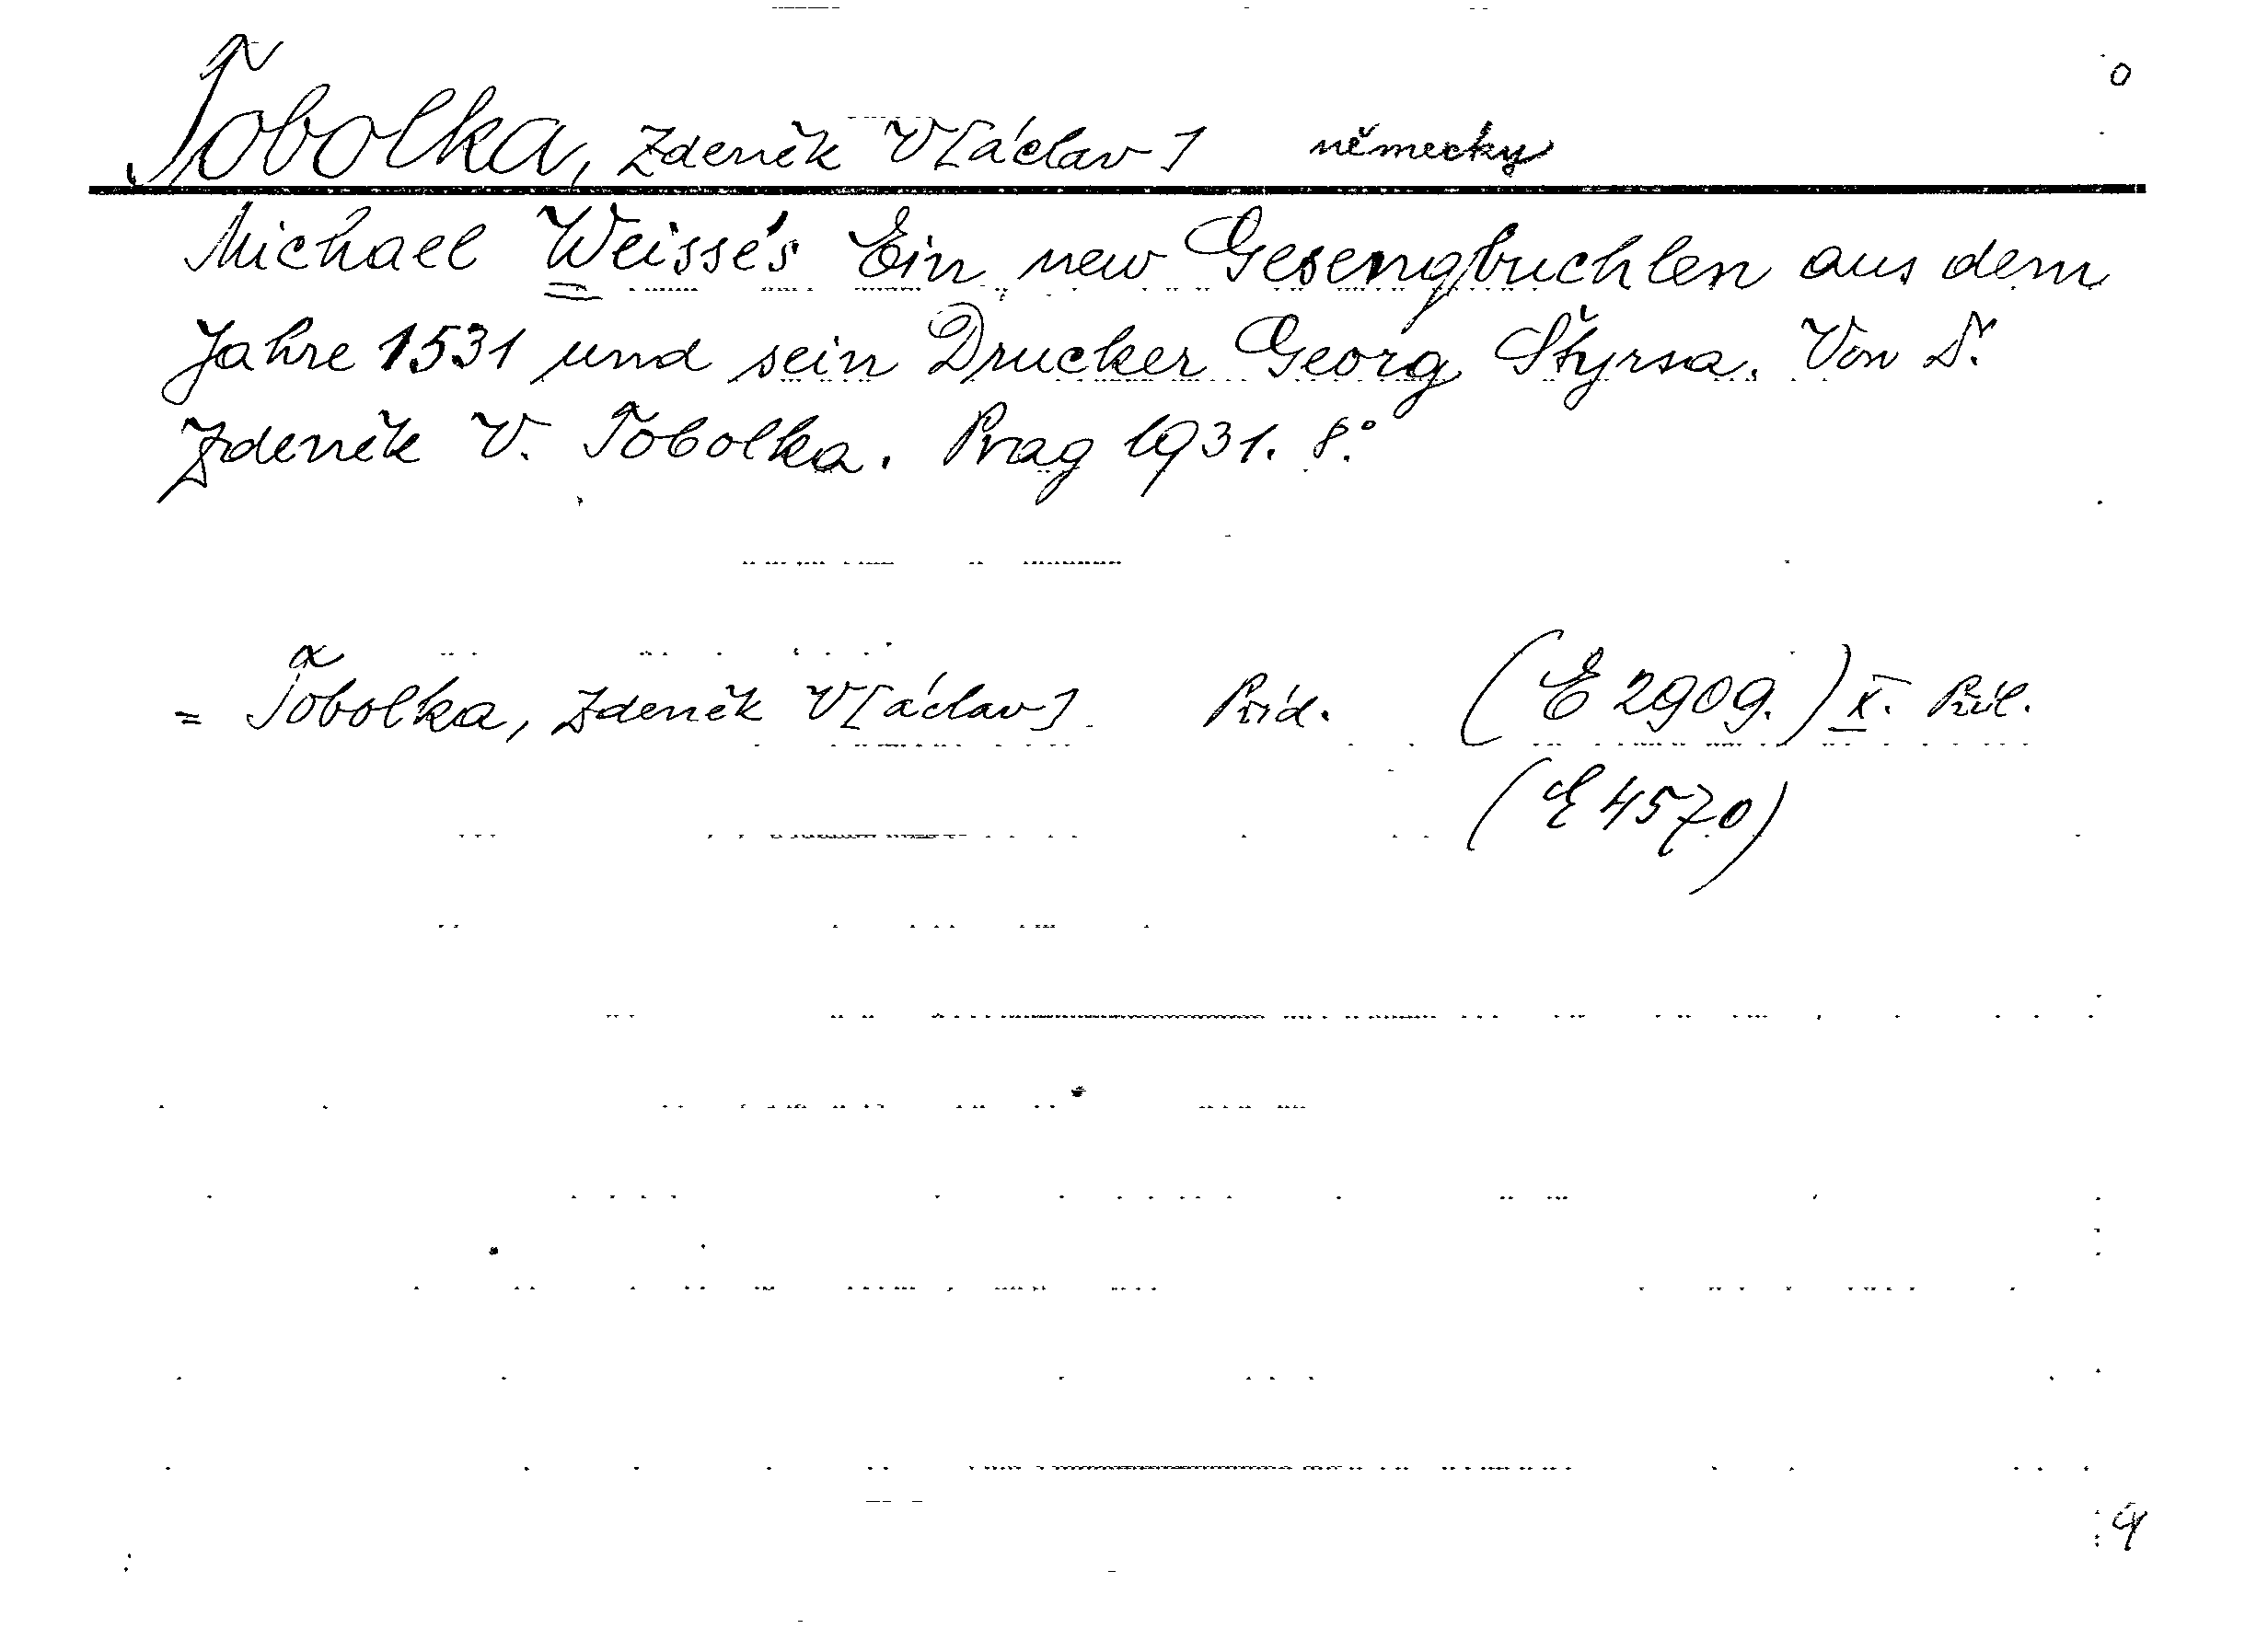 o
Tobolka, Zdeněk V[áclav] německy
Michael Weisse's Ein new Gesengbuchlen aus dem
Jahre 1531 und sein Drucker Georg Štyrsa. Von Dr.
Zdeněk V. Tobolka. Prag 1931. 8.°
= Tobolka, Zdeněk V[áclav] Příd. (E 2909.) X. Příl.
(E 4570)